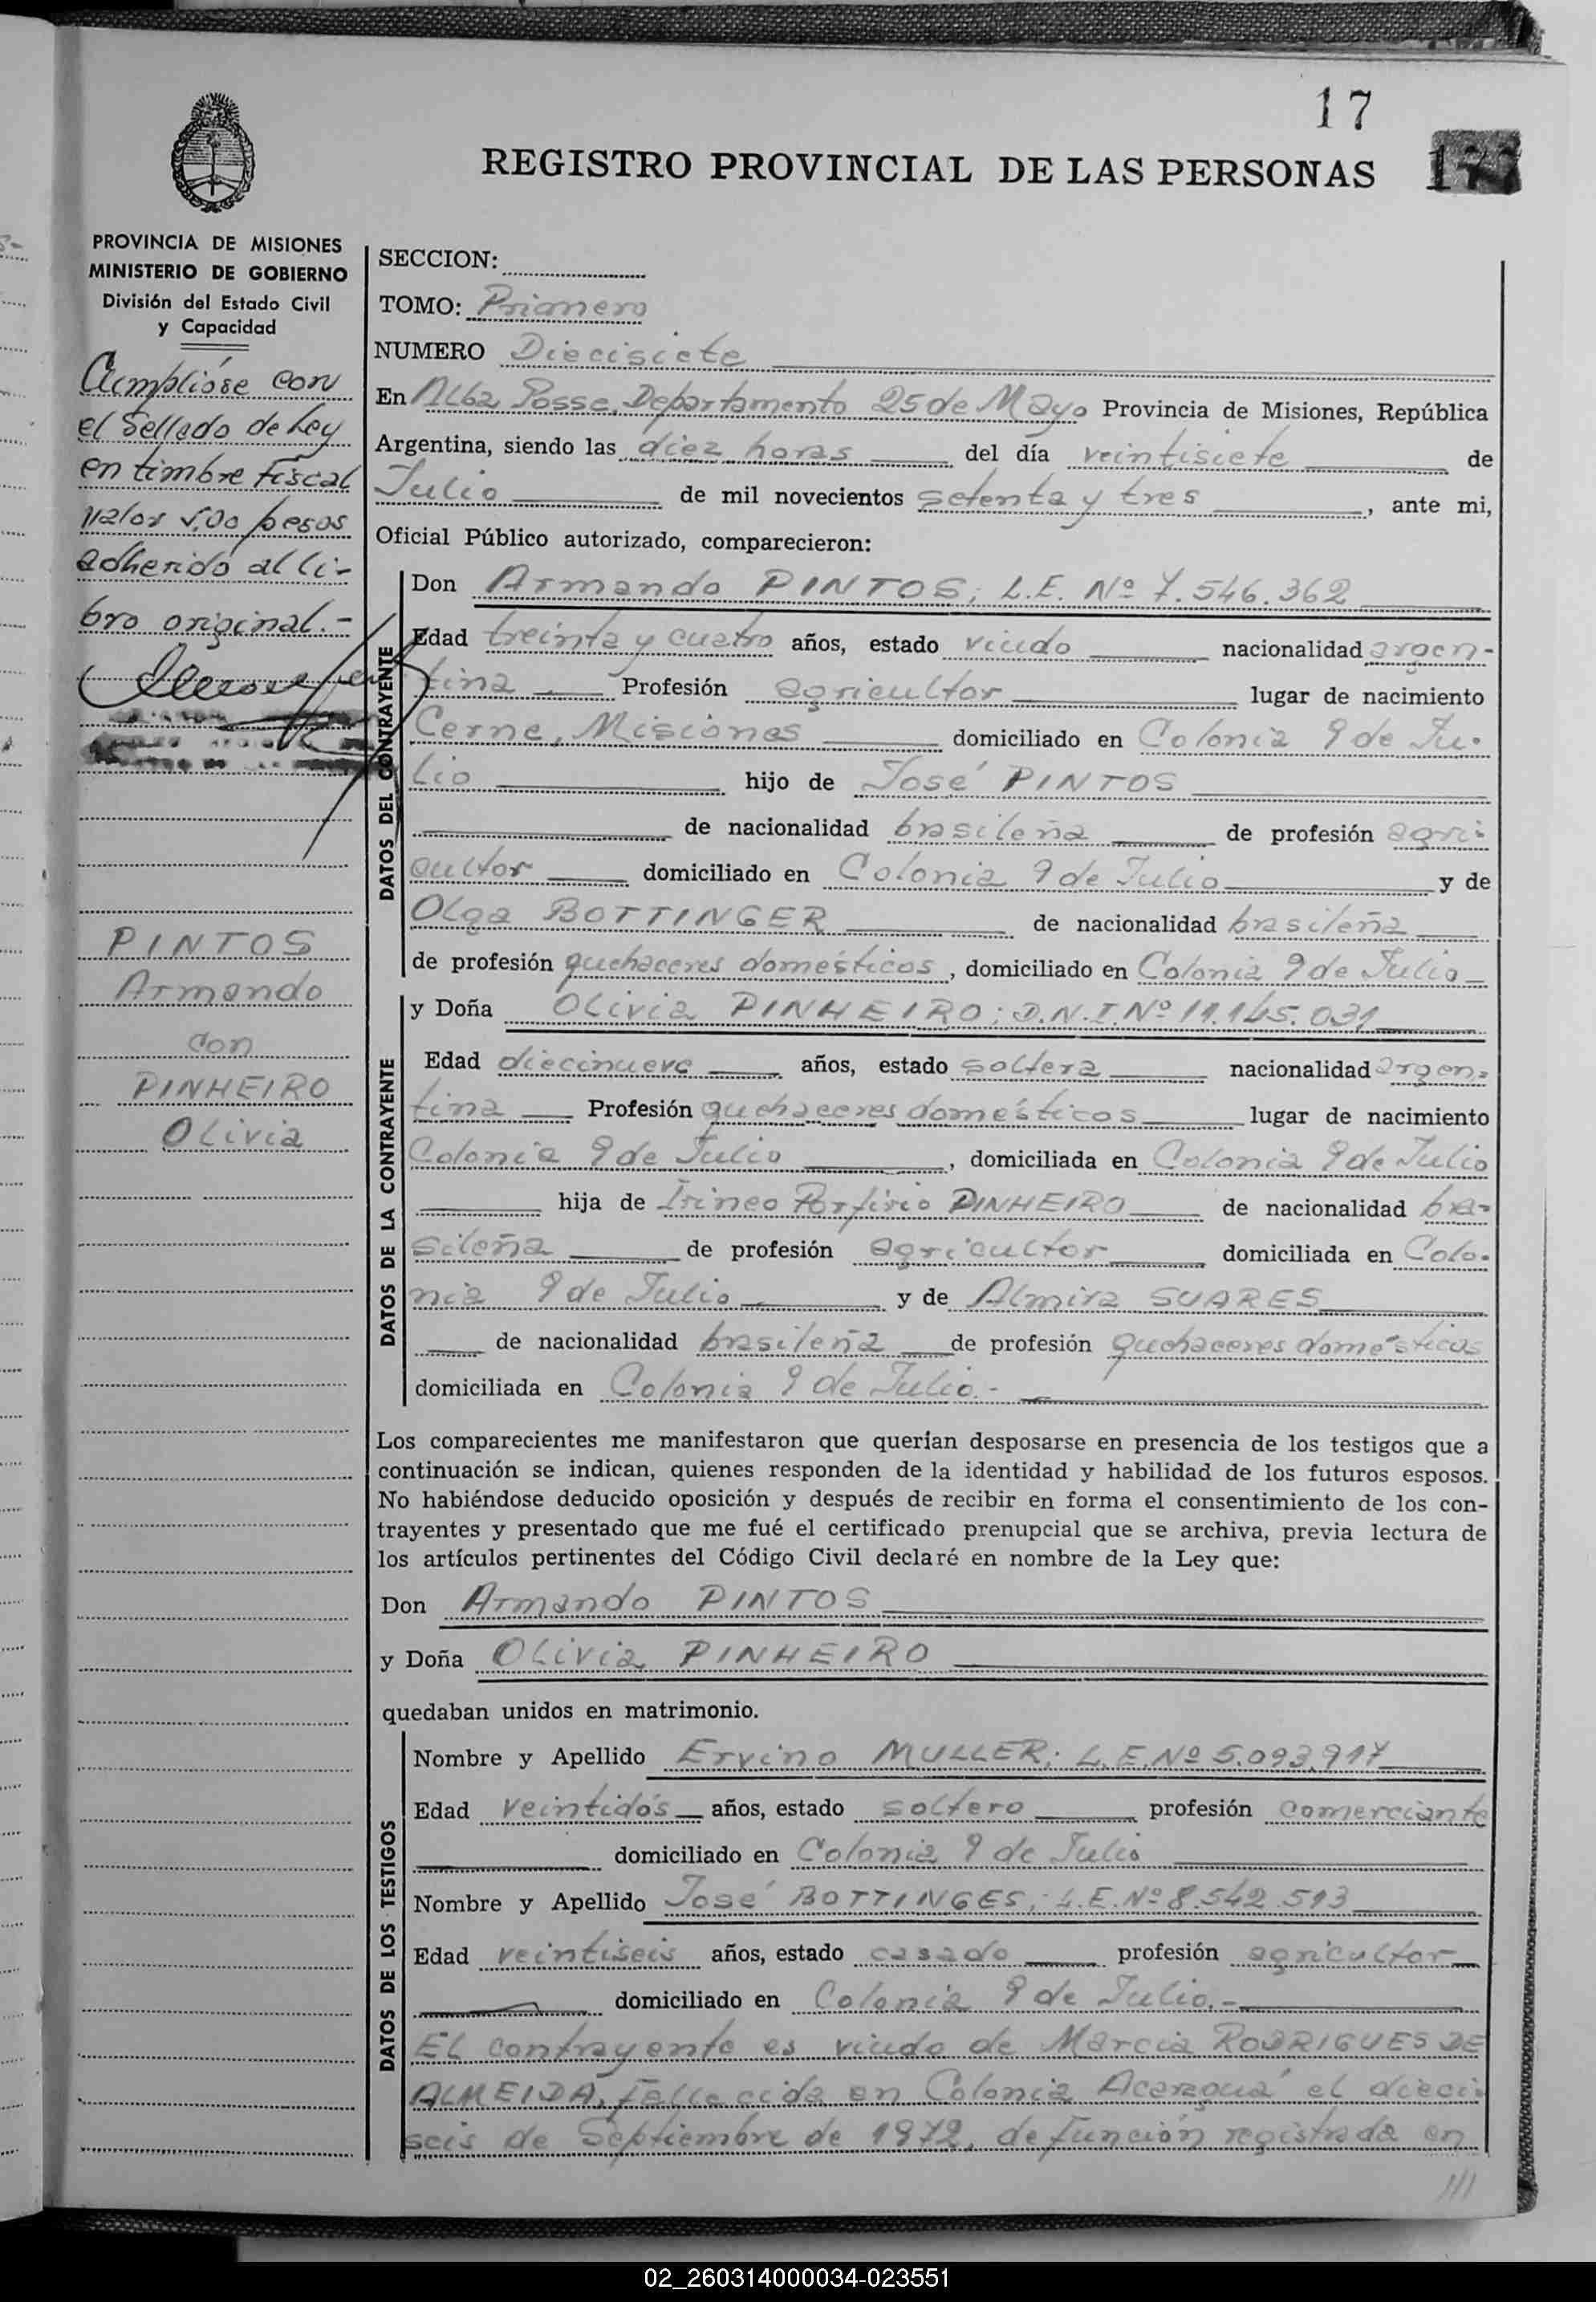 17
REGISTRO PROVINCIAL DE LAS PERSONAS
177
PROVINCIA DE MISIONES
MINISTERIO DE GOBIERNO
División del Estado Civil
y Capacidad
Cumplióse con
el Sellado de Ley
en timbre Fiscal
valor 5,00 pesos
adherido al li-
bro original.-
PINTOS
Armando
con
PINHEIRO
Olivia
SECCION:
TOMO: Primero
NUMERO Diecisiete
En Alba Posse, Departamento 25 de Mayo Provincia de Misiones, República
Argentina, siendo las diez horas del día veintisiete de
Julio de mil novecientos setenta y tres, ante mi,
Oficial Público autorizado, comparecieron:
DATOS DEL CONTRAYENTE
Don Armando PINTOS; L.E. Nº 7.546.362
Edad treinta y cuatro años, estado viudo nacionalidad argen-
tina Profesión agricultor lugar de nacimiento
Cerne, Misiones domiciliado en Colonia 9 de Ju-
lio hijo de José PINTOS
de nacionalidad brasileña de profesión agri-
cultor domiciliado en Colonia 9 de Julio y de
Olga BOTTINGER de nacionalidad brasileña
de profesión quehaceres domésticos, domiciliado en Colonia 9 de Julio
DATOS DE LA CONTRAYENTE
y Doña Olivia PINHEIRO; D.N.I. Nº 11.145.031
Edad diecinueve años, estado soltera nacionalidad argen-
tina Profesión quehaceres domésticos lugar de nacimiento
Colonia 9 de Julio, domiciliada en Colonia 9 de Julio
hija de Irineo Porfirio PINHEIRO de nacionalidad bra-
sileña de profesión agricultor domiciliada en Colo-
nia 9 de Julio y de Almira SUARES
de nacionalidad brasileña de profesión quehaceres domésticos
domiciliada en Colonia 9 de Julio.-
Los comparecientes me manifestaron que querían desposarse en presencia de los testigos que a
continuación se indican, quienes responden de la identidad y habilidad de los futuros esposos.
No habiéndose deducido oposición y después de recibir en forma el consentimiento de los con-
trayentes y presentado que me fué el certificado prenupcial que se archiva, previa lectura de
los artículos pertinentes del Código Civil declaré en nombre de la Ley que:
Don Armando PINTOS
y Doña Olivia PINHEIRO
quedaban unidos en matrimonio.
DATOS DE LOS TESTIGOS
Nombre y Apellido Ervino MULLER; L.E. Nº 5.093.917
Edad veintidós años, estado soltero profesión comerciante
domiciliado en Colonia 9 de Julio
Nombre y Apellido José BOTTINGES; L.E. Nº 8.542.513
Edad veintiseis años, estado casado profesión agricultor
domiciliado en Colonia 9 de Julio.-
El contrayente es viudo de Marcia RODRIGUES DE
ALMEIDA, fallecida en Colonia Acaraguá el dieci-
seis de Septiembre de 1972, defunción registrada en
///
02_260314000034-023551